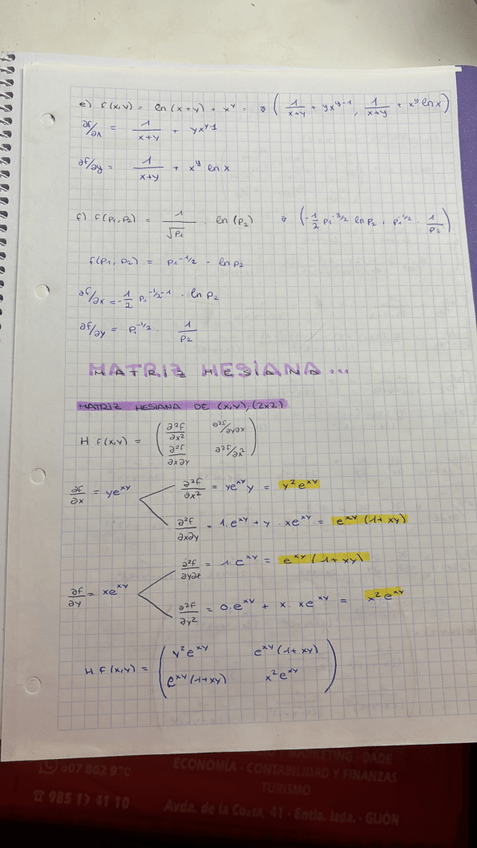 e) f(x,y) = ln (x+y) + x^y → ( 1/(x+y) + yx^(y-1) , 1/(x+y) + x^y ln x )
∂f/∂x = 1/(x+y) + yx^(y-1)
∂f/∂y = 1/(x+y) + x^y ln x
f) f(P₁,P₂) = 1/√P₁ · ln (P₂) → ( -1/2 P₁^(-3/2) ln P₂ , P₁^(-1/2) · 1/P₂ )
f(P₁, P₂) = P₁^(-1/2) · ln P₂
∂f/∂x = -1/2 P₁^(-1/2-1) · ln P₂
∂f/∂y = P₁^(-1/2) · 1/P₂
MATRIZ HESIANA...
MATRIZ HESIANA DE (x,y),(2x2)
H f(x,y) = ( ∂²f/∂x² ∂²f/∂y∂x
∂²f/∂x∂y ∂²f/∂x² )
∂f/∂x = ye^xy
∂²f/∂x² = ye^xy y = y²e^xy
∂²f/∂x∂y = 1·e^xy + y · xe^xy = e^xy (1+xy)
∂f/∂y = xe^xy
∂²f/∂y∂x = 1·e^xy = e^xy (1+xy)
∂²f/∂y² = 0·e^xy + x · xe^xy = x²e^xy
H f(x,y) = ( y²e^xy e^xy (1+xy)
e^xy (1+xy) x²e^xy )
MARKETING · DADE
607 862 970
ECONOMÍA · CONTABILIDAD Y FINANZAS
TURISMO
985 17 41 10
Avda. de la Costa, 41 - Entlo. Izda. - GIJÓN